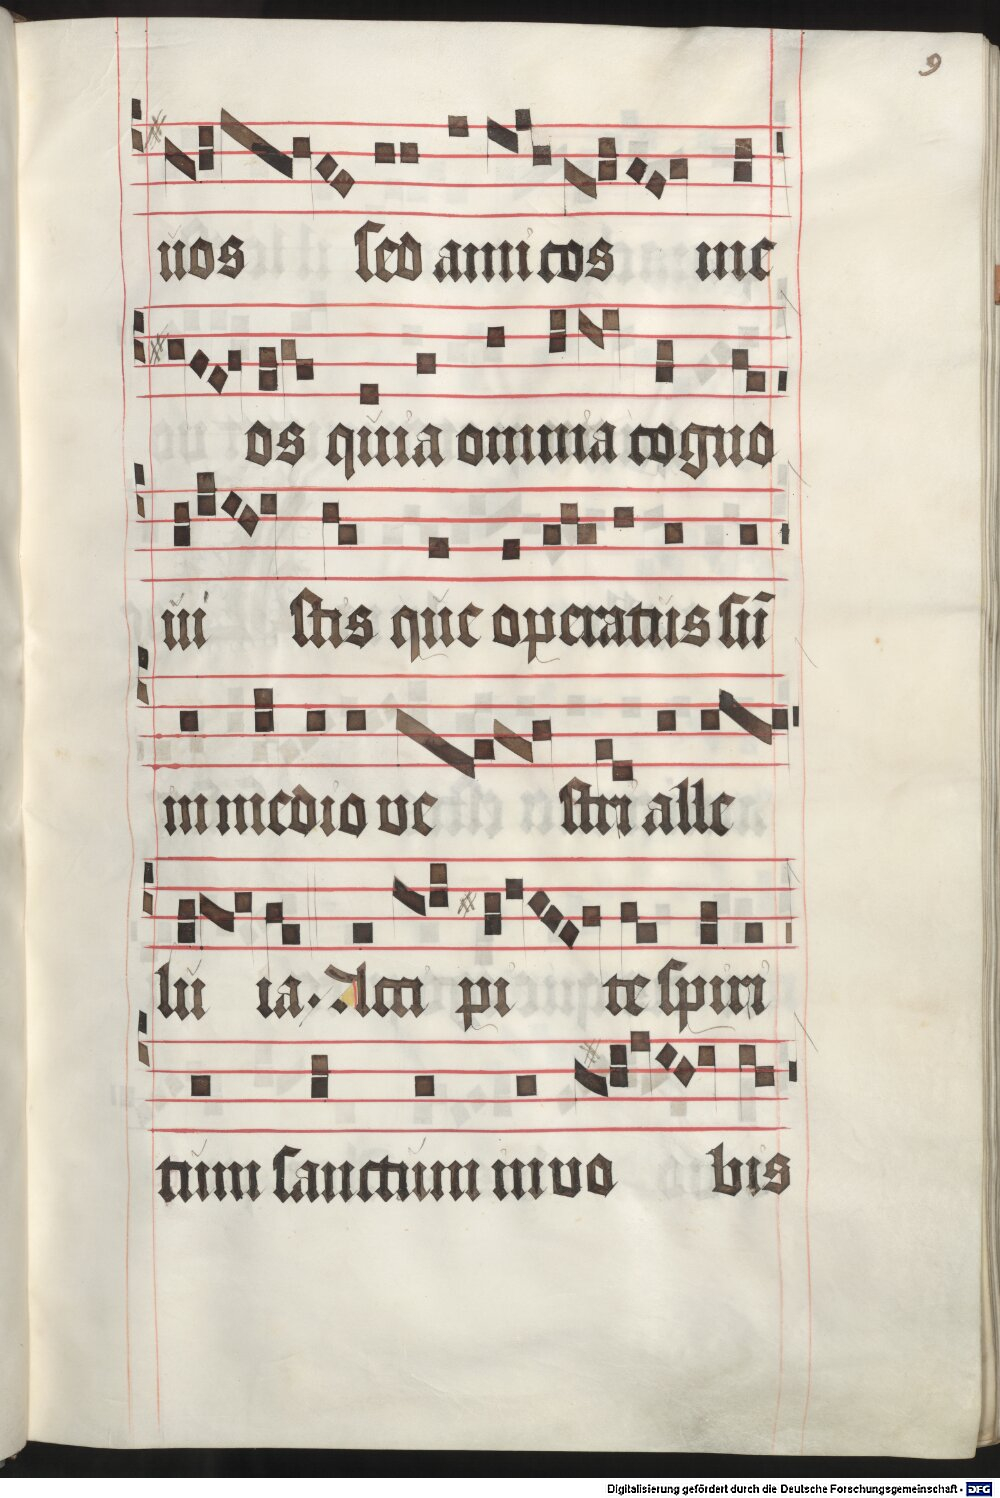 9
uos sed amicos me
os quia omnia cogno
ui stis que operatus sū
in medio ve stri alle
lu ia. Acci pi te spiri
tum sanctum in vo bis
Digitalisierung gefördert durch die Deutsche Forschungsgemeinschaft - DFG